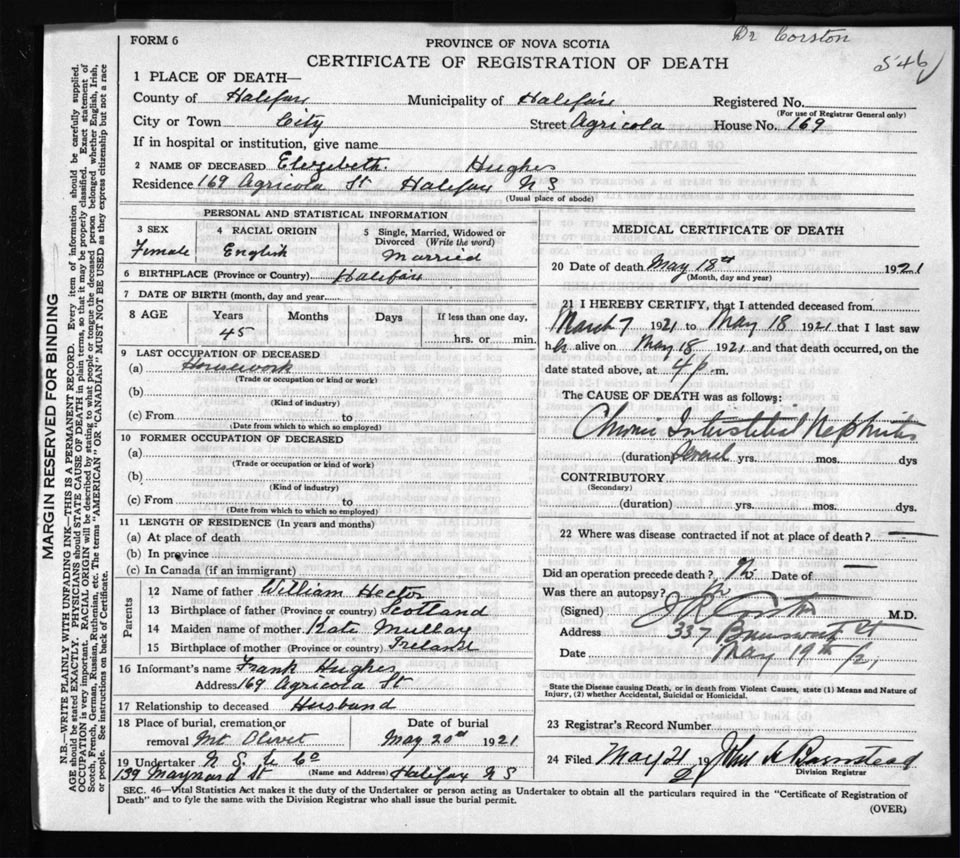 Dr Corston
546
FORM 6
PROVINCE OF NOVA SCOTIA
CERTIFICATE OF REGISTRATION OF DEATH
1 PLACE OF DEATH—
County of Halifax Municipality of Halifax Registered No.
(For use of Registrar General only)
City or Town City Street Agricola House No. 169
If in hospital or institution, give name
2 NAME OF DECEASED Elizebeth. Hughes
Residence 169 Agricola St Halifax N S
(Usual place of abode)
PERSONAL AND STATISTICAL INFORMATION
3 SEX Female
4 RACIAL ORIGIN English
5 Single, Married, Widowed or Divorced (Write the word) Married
6 BIRTHPLACE (Province or Country) Halifax
7 DATE OF BIRTH (month, day and year
8 AGE Years Months Days If less than one day,
45 hrs. or min.
9 LAST OCCUPATION OF DECEASED
(a) Housework
(Trade or occupation or kind or work)
(b)
(Kind of industry)
(c) From to
(Date from which to which so employed)
10 FORMER OCCUPATION OF DECEASED
(a)
(Trade or occupation or kind of work)
(b)
(Kind of industry)
(c) From to
(Date from which to which so employed)
11 LENGTH OF RESIDENCE (In years and months)
(a) At place of death
(b) In province
(c) In Canada (if an immigrant)
Parents
12 Name of father William Hector
13 Birthplace of father (Province or country) Scotland
14 Maiden name of mother Kate Mullay
15 Birthplace of mother (Province or country) Ireland
16 Informant's name Frank Hughes
Address 169 Agricola St
17 Relationship to deceased Husband
18 Place of burial, cremation or Date of burial
removal Mt Olivet May 20th 1921
19 Undertaker N. S. U Co
139 Maynard St (Name and Address) Halifax N S
MEDICAL CERTIFICATE OF DEATH
20 Date of death May 18th 1921
(Month, day and year)
21 I HEREBY CERTIFY, that I attended deceased from
March 7 1921 to May 18 1921 that I last saw
her alive on May 18 1921 and that death occurred, on the
date stated above, at 4 p. m.
The CAUSE OF DEATH was as follows:
Chronic Interstitial Nephritis
(duration) Several yrs. mos. dys
CONTRIBUTORY
(Secondary)
(duration) yrs. mos. dys.
22 Where was disease contracted if not at place of death? —
Did an operation precede death? No Date of —
Was there an autopsy?
(Signed) Corston M.D.
Address 337 Brunswick St
Date May 19th /21
State the Disease causing Death, or in death from Violent Causes, state (1) Means and Nature of
Injury, (2) whether Accidental, Suicidal or Homicidal.
23 Registrar's Record Number
24 Filed May 21 19 John A Barnstead
Division Registrar
SEC. 46—Vital Statistics Act makes it the duty of the Undertaker or person acting as Undertaker to obtain all the particulars required in the "Certificate of Registration of
Death" and to fyle the same with the Division Registrar who shall issue the burial permit.
(OVER)
MARGIN RESERVED FOR BINDING
N.B.—WRITE PLAINLY WITH UNFADING INK—THIS IS A PERMANENT RECORD. Every item of information should be carefully supplied.
AGE should be stated EXACTLY. PHYSICIANS should STATE CAUSE OF DEATH in plain terms, so that it may be properly classified. Exact statement of
OCCUPATION is very important. RACIAL ORIGIN will be described by stating to what people or tongue the deceased person belonged whether English, Irish,
Scotch, French, German, Russian, Ruthenian, etc. The terms "AMERICAN" OR "CANADIAN" MUST NOT BE USED as they express citizenship but not a race
or people. See instructions on back of Certificate.